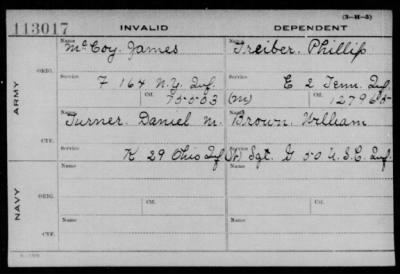 (3-H-3)
113017 INVALID DEPENDENT
Name McCoy, James Name Treiber, Phillip
ORIG.
Service F 164 N.Y. Inf. Service E 2 Tenn. Inf.
Ctf. 75553 (M) Ctf. 127965
ARMY
Name Turner, Daniel M. Name Brown, William
CTF.
Service K 29 Ohio Inf. Service Sgt. G 50 U.S.C. Inf.
Name Name
ORIG.
NAVY
Name Name
CTF.